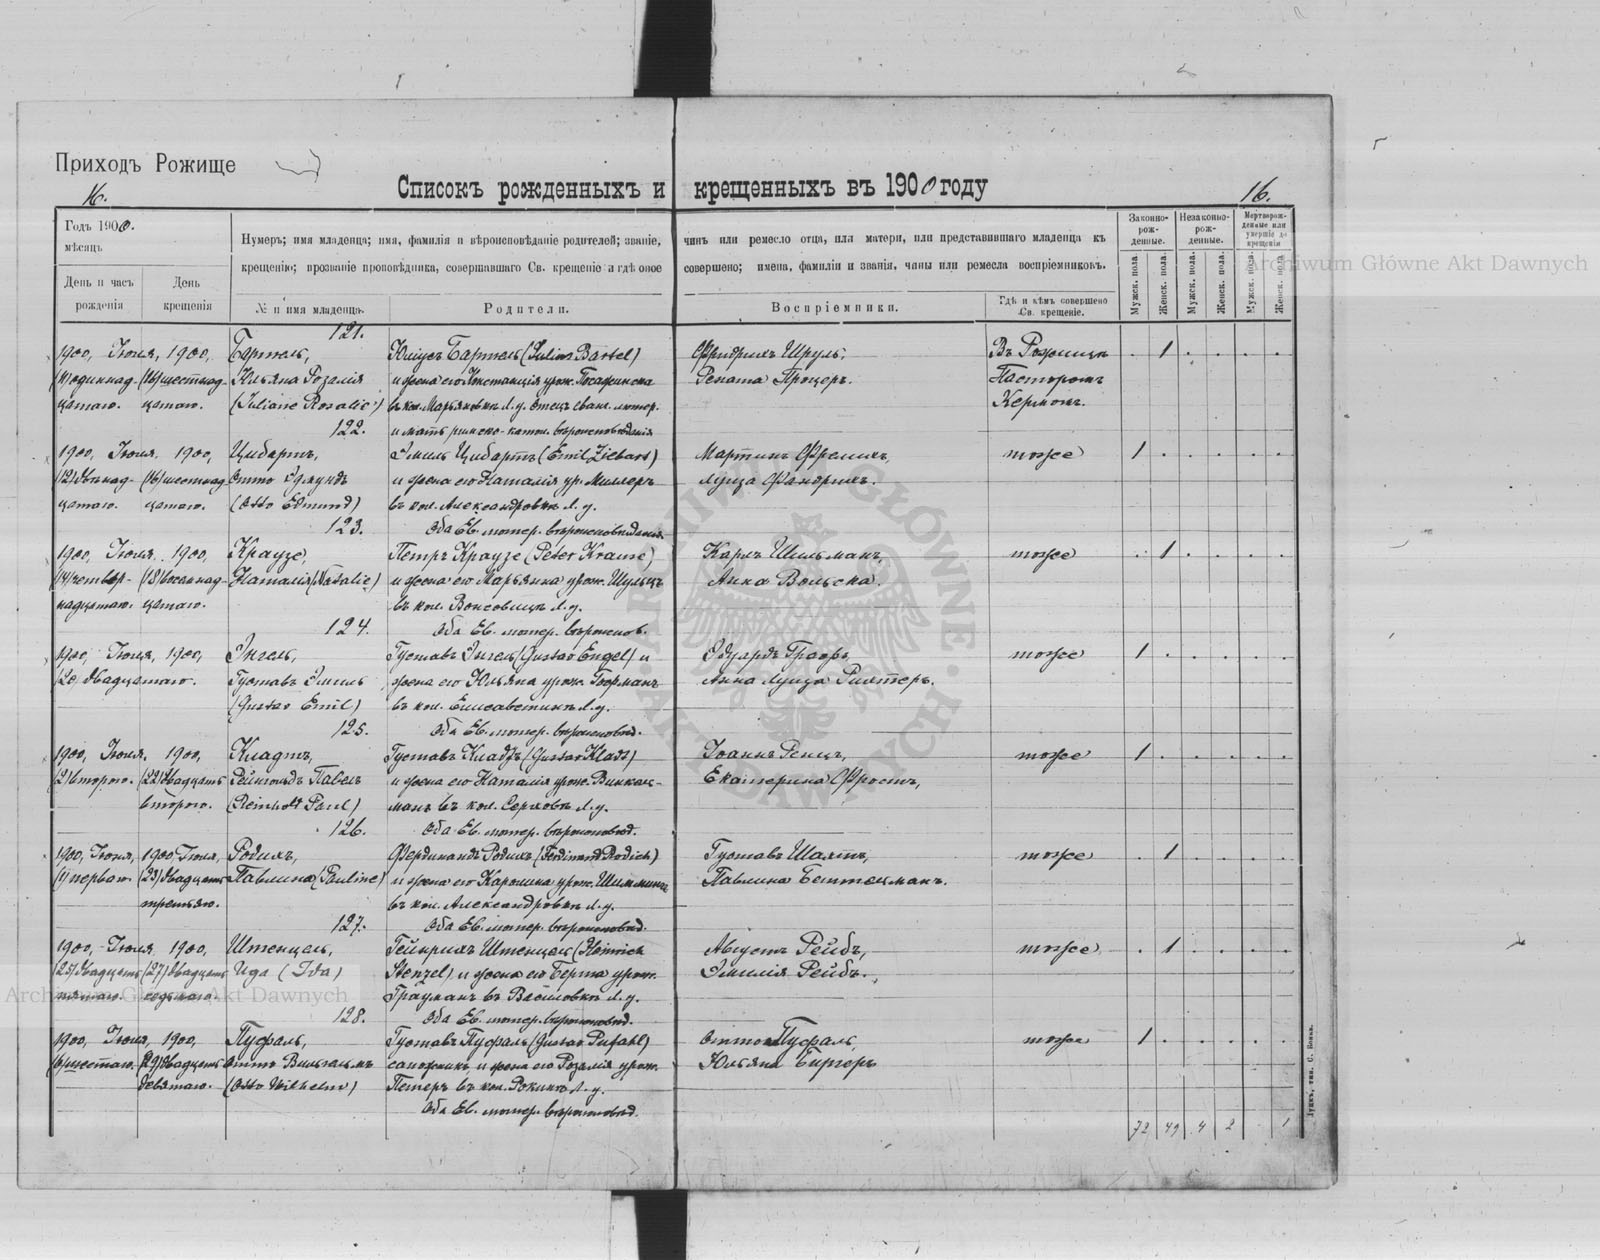 Приходъ Рожище
16.
Списокъ рожденныхъ и крещенныхъ въ 1900 году
16.
Годъ 1900.
мѣсяцъ
День и часъ рожденія
День крещенія
Нумеръ; имя младенца; имя, фамилія и вѣроисповѣданіе родителей; званіе, чинъ или ремесло отца, или матери, или представившаго младенца къ
крещенію; прозваніе проповѣдника, совершавшаго Св. крещеніе и гдѣ оное совершено; имена, фамиліи и званія, чины или ремесла воспріемниковъ.
№ и имя младенца.
Родители.
Воспріемники.
Гдѣ и кѣмъ совершено Св. крещеніе.
Законно-рож-денные.
Незаконно-рож-денные.
Мертворож-денные или умершіе до крещенія
Мужск. пола.
Женск. пола.
Мужск. пола.
Женск. пола.
Мужск. пола.
Женск. пола
121.
1900, Іюля, 1900, Бартель, Юліусъ Бартель (Julius Bartel) Фридрихъ Шруль, Въ Рожищѣ . 1 . . . .
(11) одиннад- (16) шестнад- Юльяна Розалія и жена его Констанція урож. Рената Процеръ. Пасторомъ
цатаго. цатаго. (Juliane Rosalie) въ кол. Марьяновкѣ Л. у. Отецъ Еванг. лютер. Кермомъ.
122. и мать римско-катол. вѣроисповѣданія
1900, Іюля, 1900, Цибартъ, Эмиль Цибартъ (Emil Ziebart) Мартинъ Фремихъ, тоже 1 . . . . .
(12) двѣнад- (16) шестнад- Отто Эдмундъ и жена его Наталія ур. Миллеръ Луиза Фандрихъ.
цатаго. цатаго. (Otto Edmund) въ кол. Александровкѣ Л. у.
123. Оба Ев. лютер. вѣроисповѣданія
1900, Іюля, 1900, Краузе, Петръ Краузе (Peter Krause) Карлъ Шильманъ, тоже . 1 . . . .
(14) четвер- (18) восемнад- Наталія (Natalie) и жена его Марьянна урож. Шульцъ Анна Вольска.
надцатаго. цатаго. въ кол. Воисовицѣ Л. у.
124. Оба Ев. лютер. вѣроиспов.
1900, Іюля, 1900, Энгель, Густавъ Энгель (Gustav Engel) и Эдуардъ Графъ, тоже 1 . . . . .
(20) двадцатаго. Густавъ Эмиль жена его Юльяна урож. Гоорманъ Анна Луиза Рихтеръ.
(Gustav Emil) въ кол. Елисаветинѣ Л. у.
125. Оба Ев. лютер. вѣроисповѣд.
1900, Іюля, 1900, Кладтъ, Густавъ Кладтъ (Gustav Kladt) Іоаннъ Ренцъ, тоже 1 . . . . .
(2) второго. (22) двадцать Рейнгольдъ Павелъ и жена его Наталія урож. Винкель- Екатерина Фростъ,
второго. (Reinhold Paul) манъ въ кол. Л. у.
126. Оба Ев. лютер. вѣроисповѣд.
1900, Іюля, 1900, Іюля, Родихъ, Фердинандъ Родихъ (Ferdinand Rodich) Густавъ Шаттъ, тоже . 1 . . . .
(1) первого (23) двадцать Павлина (Pauline) и жена его Каролина урож. Шиммингъ Павлина Беттхерманъ.
третьяго. въ кол. Александровкѣ Л. у.
127. Оба Ев. лютер. вѣроисповѣд.
1900, Іюля 1900, Штенцель, Гейнрихъ Штенцель (Heinrich Августъ Рейбъ, тоже . 1 . . . .
(25) двадцать (27) двадцать Ида (Ida) Stenzel) и жена его Берта урож. Эмилія Рейбъ.
пятаго. седьмаго. Грауманъ въ Василовкѣ Л. у.
128. Оба Ев. лютер. вѣроисповѣд.
1900, Іюля, 1900, Пуфаль, Густавъ Пуфаль (Gustav Pufahl) Оттонъ Пуфаль, тоже 1 . . . . .
(6) шестаго. (29) двадцать Отто Вильгельмъ сапожникъ, и жена его Розалія урож. Юльяна Биргеръ
девятаго. (Otto Wilhelm) Петеръ въ кол. Рокини Л. у.
Оба Ев. лютер. вѣроисповѣд.
72 49 4 2 1
Луцкъ, тип. С. Бонка.
Archiwum Główne Akt Dawnych
Archiwum Główne Akt Dawnych
ARCHIWUM GŁÓWNE AKT DAWNYCH